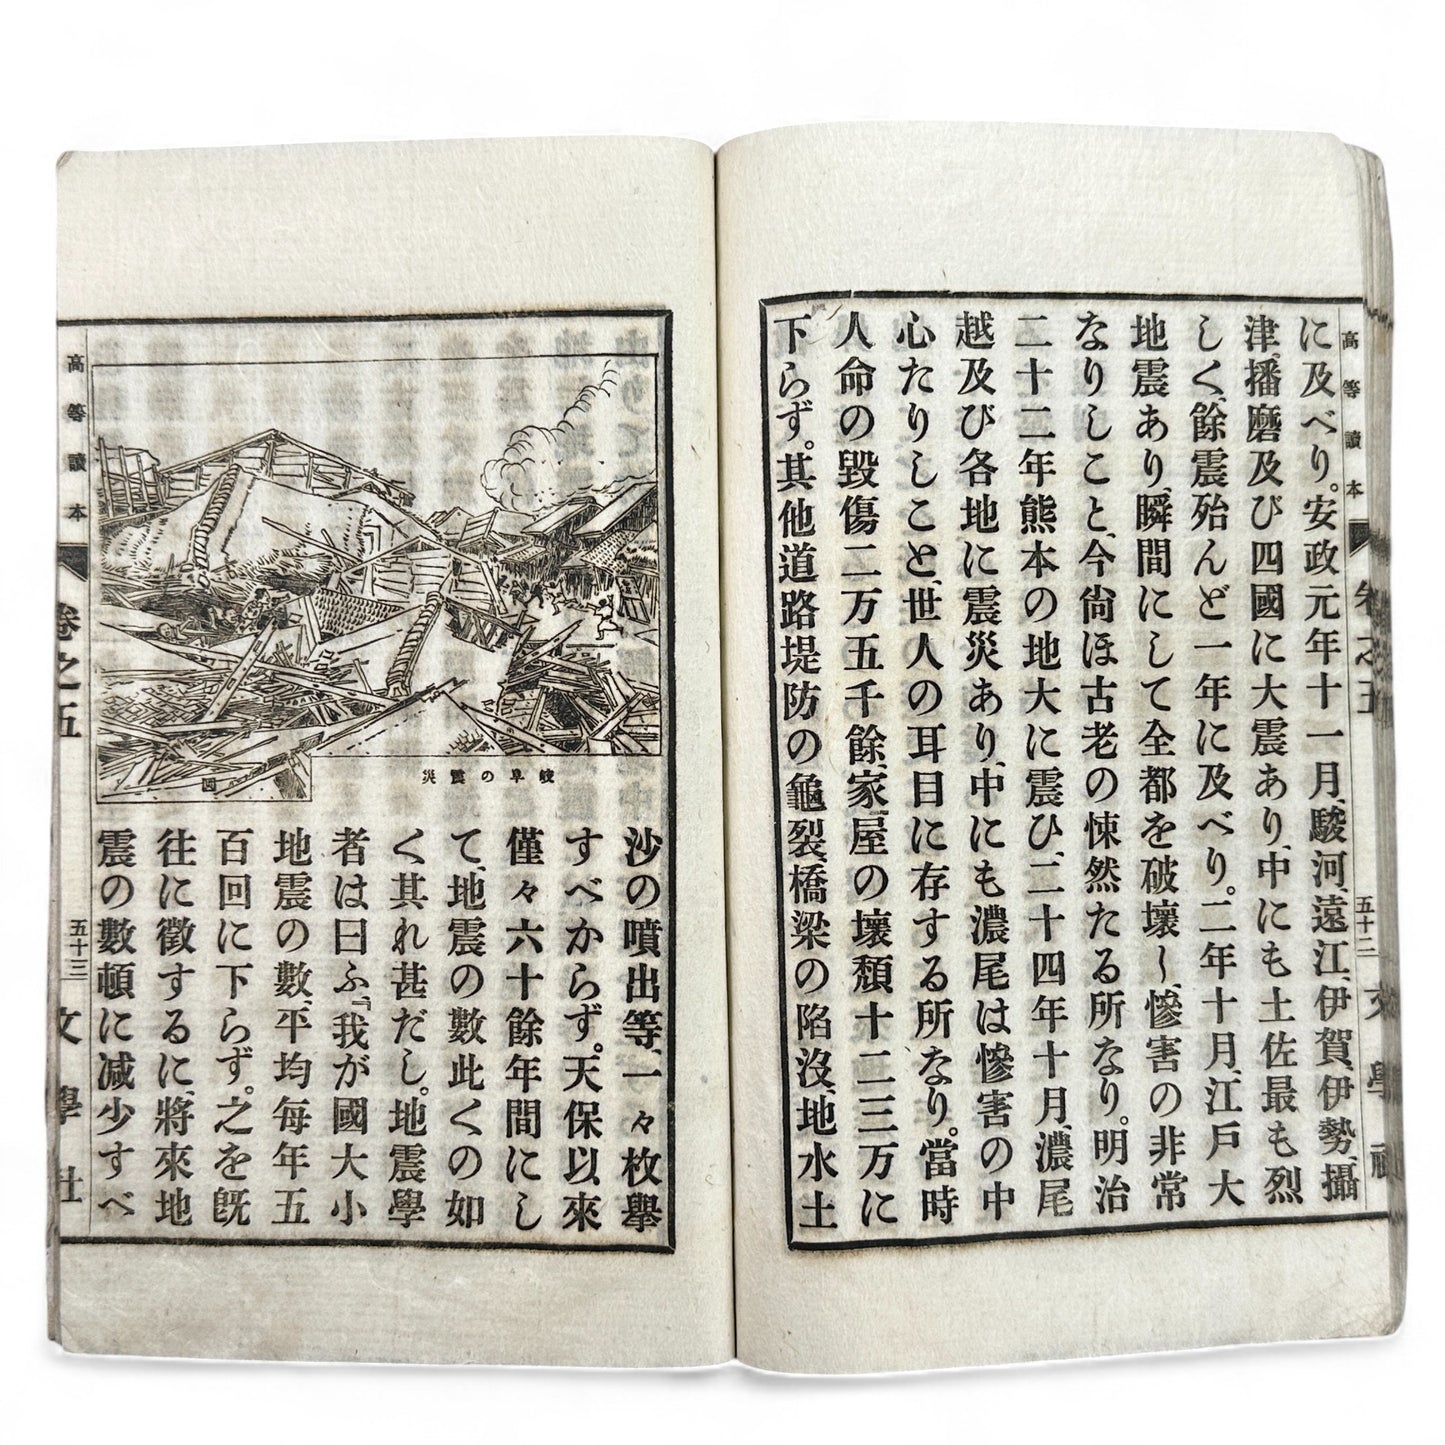 高等讀本
五十二
に及べり。安政元年十一月、駿河、遠江、伊賀、伊勢、攝
津、播磨及び四國に大震あり、中にも土佐最も烈
しく、餘震殆んど一年に及べり。二年十月、江戸大
地震あり、瞬間にして全都を破壞し、慘害の非常
なりしこと、今尙ほ古老の悚然たる所なり。明治
二十二年熊本の地大に震ひ、二十四年十月、濃尾
越及び各地に震災あり、中にも濃尾は慘害の中
心たりしこと、世人の耳目に存する所なり。當時
人命の毀傷二万五千餘、家屋の壞頽十二三万に
下らず。其他道路堤防の龜裂、橋梁の陷沒、地水土
岐阜の震災
圖
沙の噴出等、一々枚擧
すべからず。天保以來
僅々六十餘年間にし
て、地震の數此くの如
く其れ甚だし。地震學
者は曰ふ『我が國大小
地震の數、平均每年五
百回に下らず。之を既
往に徵するに、將來地
震の數頓に減少すべ
高等讀本
卷之五
五十三
文學社